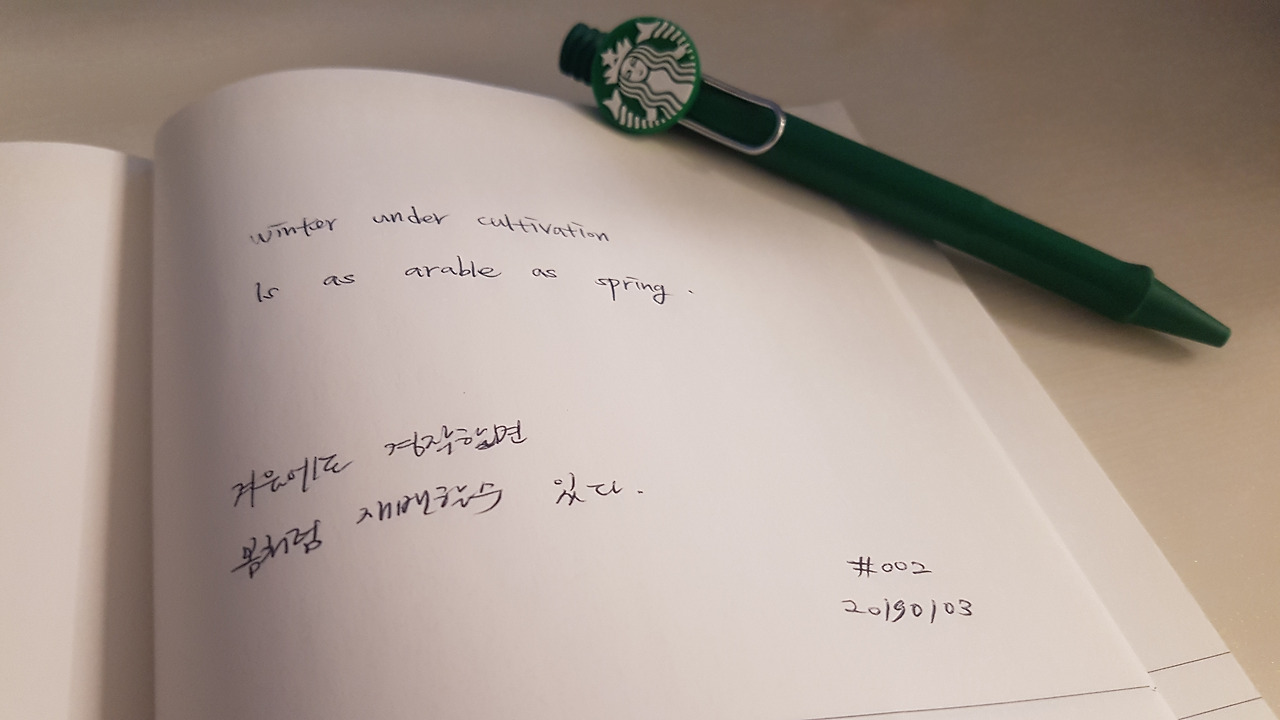 winter under cultivation
Is as arable as spring.
겨울에도 경작하면
봄처럼 재배할 수 있다.
#002
20190103